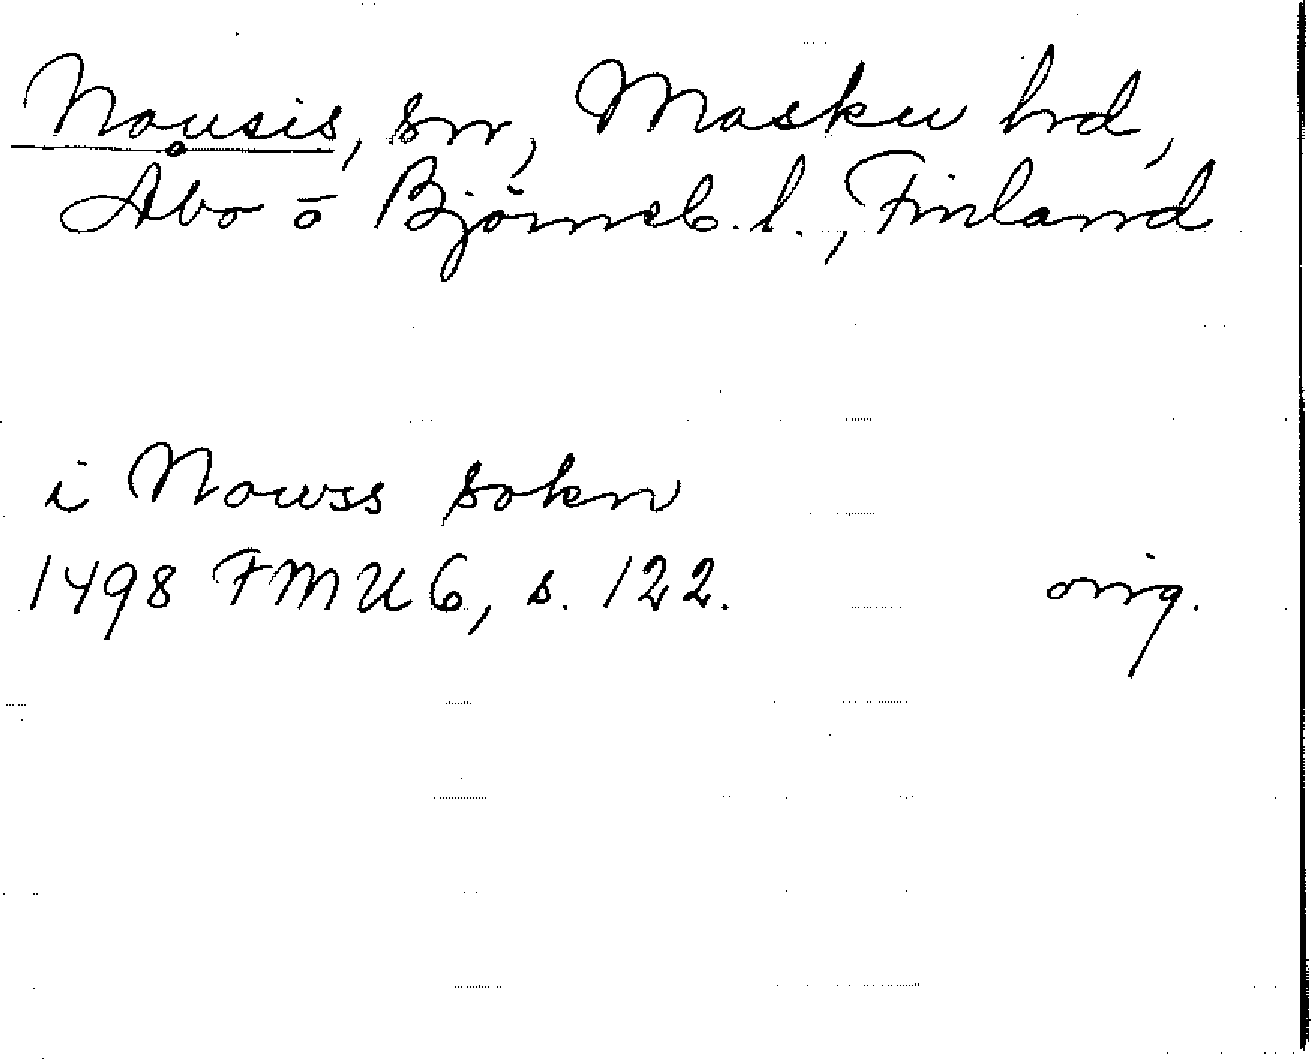 Nousis, sn, Masku hd,
Åbo o Björneb. l., Finland
i Nowss sokn
1498 FMU 6, s. 122. orig.